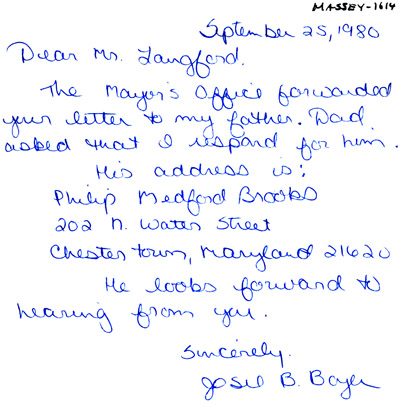 MASSEY-1614
September 25, 1980
Dear Mr. Langford.
The Mayor's Office forwarded
your letter to my father. Dad
asked that I respond for him.
His address is:
Philip Medford Brooks
202 N. Water Street
Chestertown, Maryland 21620
He looks forward to
hearing from you.
Sincerely.
Josie B. Boyer